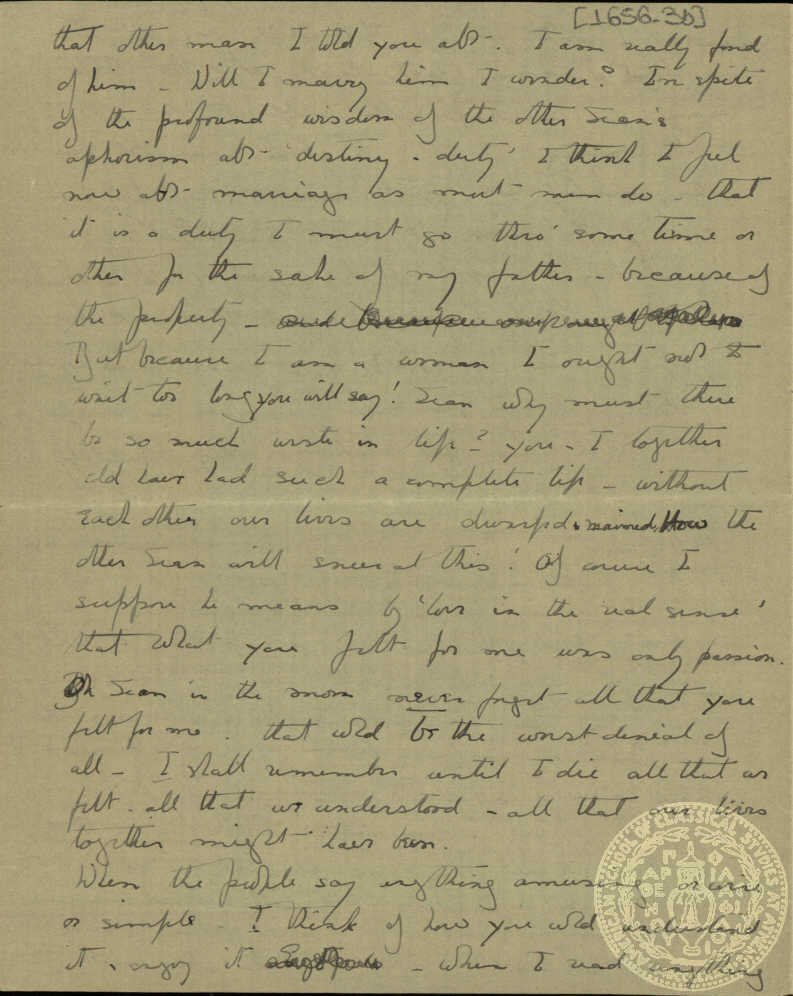 [1656-3b]
that other man I told you abt. I am really fond
of him - Will I marry him I wonder? In spite
of the profound wisdom of the other Sean's
aphorism abt 'destiny - duty' I think I feel
now abt marriage as most men do - that
it is a duty I must go thro' some time or
other for the sake of my father - because of
the property -
But because I am a woman I ought not to
wait too long you will say! Sean why must there
be so much waste in life? you - I together
cld have had such a complete life - without
each other our lives are dwarfed & maimed. How the
other Sean will sneer at this! Of course I
suppose he means by 'love in the real sense'
that what you felt for me was only passion.
Oh Sean in the moon never forget all that you
felt for me. that wld be the worst denial of
all - I shall remember until I die all that we
felt - all that we understood - all that our lives
together might have been.
When the people say anything amusing or wise
or simple - I think of how you wld understand
it & enjoy it - when I read anything
AMERICAN SCHOOL OF CLASSICAL STUDIES AT ATHENS